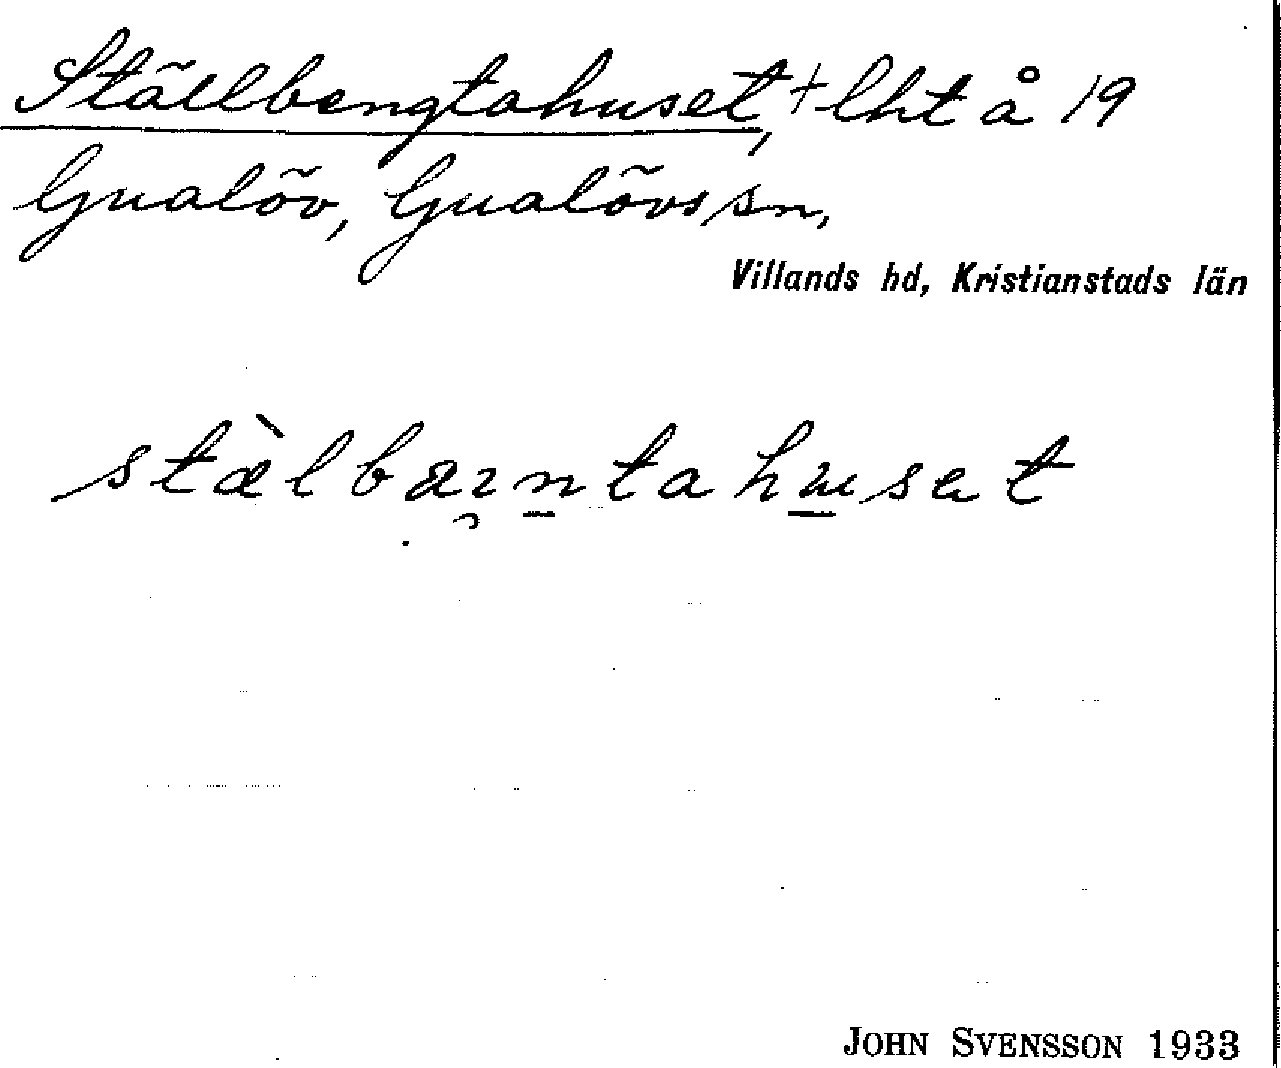 Ställbengtahuset, + lht å 19
Gualöv, Gualövs sn,
Villands hd, Kristianstads län
JOHN SVENSSON 1933